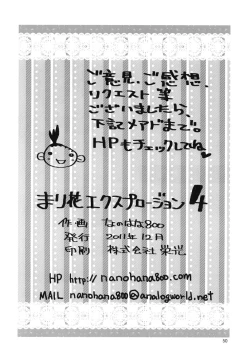 ご意見、ご感想、
リクエスト等
ございましたら、
下記メアドまで。
HPもチェックしてね
まり花エクスプロージョン4
作画 なのはな800
発行 2011年12月
印刷 株式会社 栄光
HP http://nanohana800.com
MAIL nanohana800@analogworld.net
50